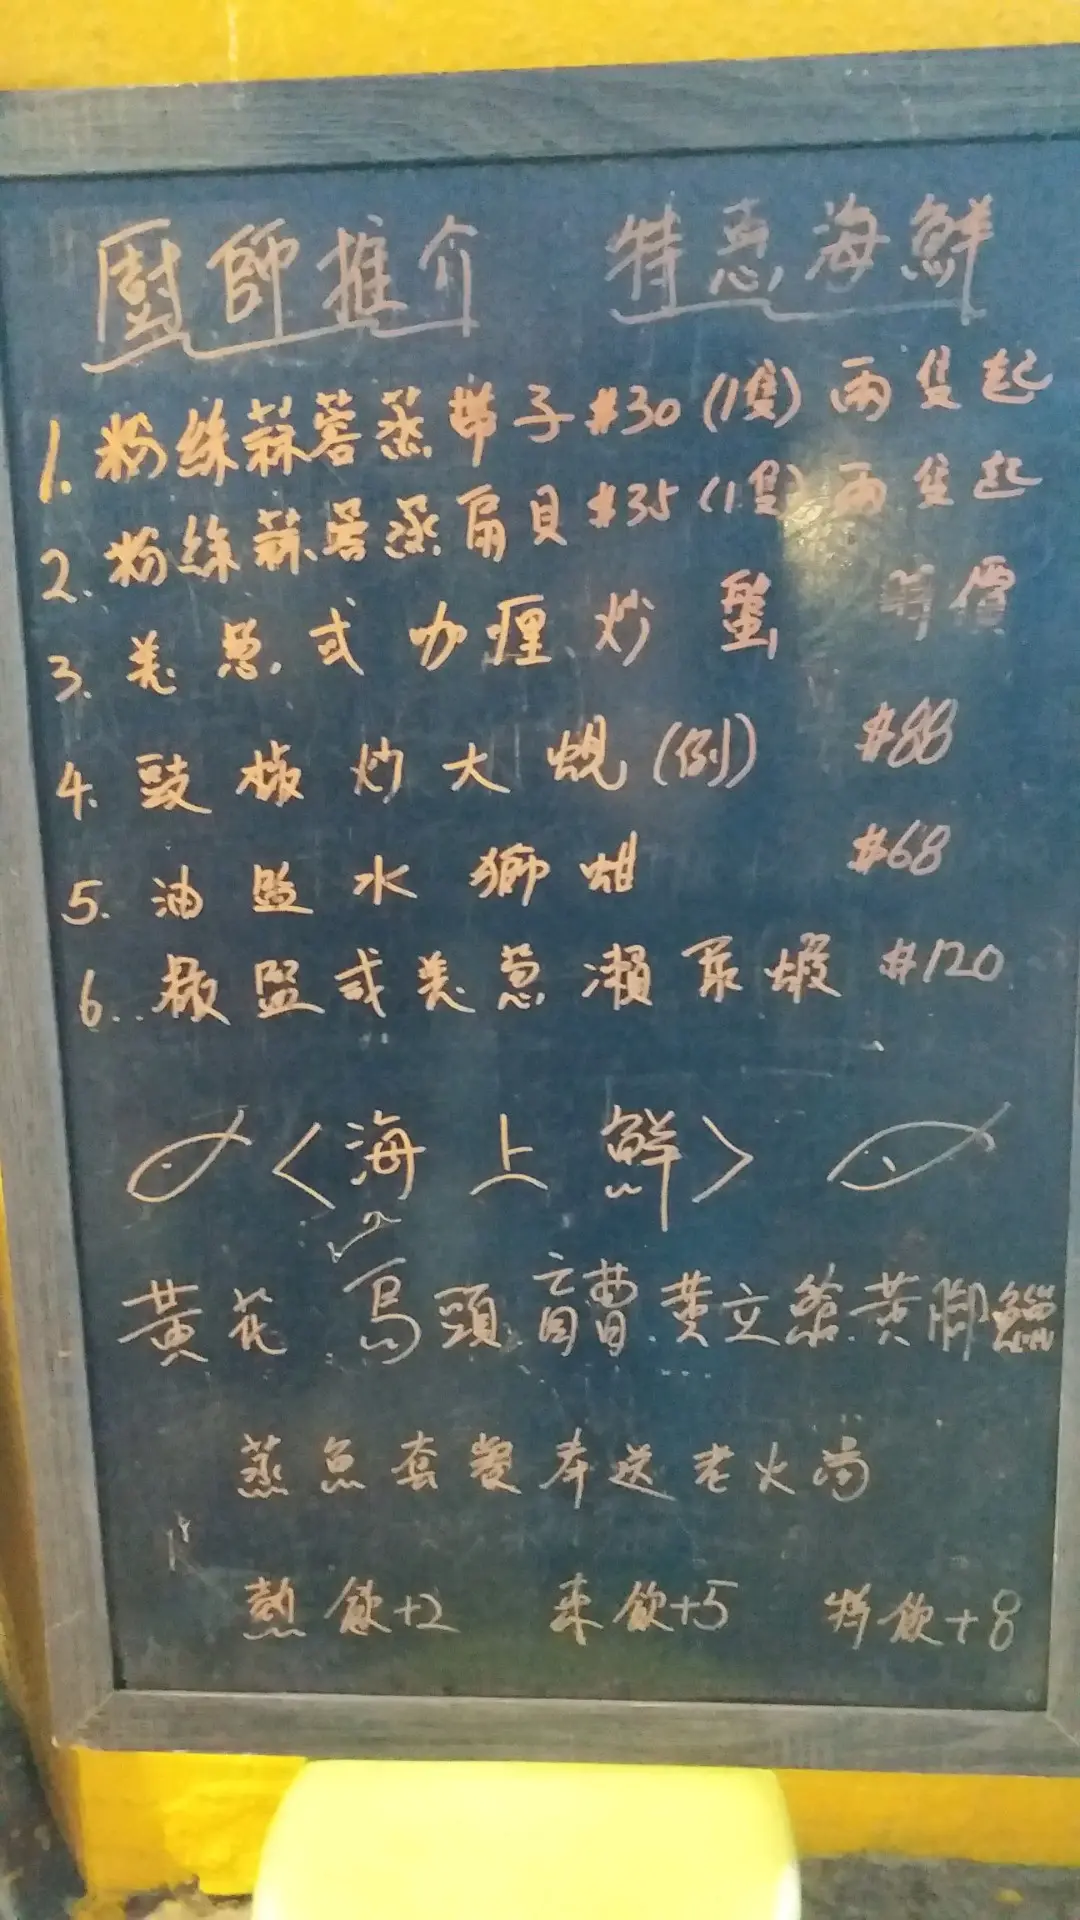 廚師推介 特惠海鮮
1. 粉絲蒜蓉蒸帶子 #30 (1隻) 兩隻起
2. 粉絲蒜蓉蒸扇貝 #35 (1隻) 兩隻起
3. 羌葱或咖喱炒蟹 價
4. 豉椒炒大蜆(例) #88
5. 油盬水獅蚶 #68
6. 椒盬或羌葱瀨尿蝦 #120
<海上鮮>
黃花 烏頭 盲曹 黃立鯧 黃腳鱲
蒸魚套餐奉送老火湯
熱飲+2 凍飲+5 特飲+8